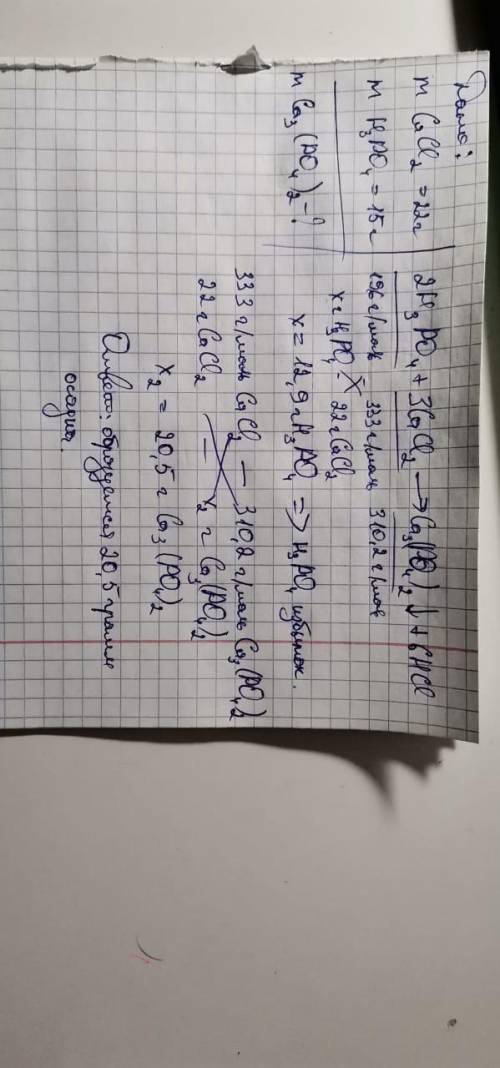 Дано:
m CaCl₂ = 22г
m H₃PO₄ = 15г
m Ca₃(PO₄)₂ - ?
2H₃PO₄ + 3CaCl₂ → Ca₃(PO₄)₂↓ + 6HCl
196 г/моль 333 г/моль 310,2 г/моль
x г H₃PO₄ 22г CaCl₂
x = 12,9г H₃PO₄ => H₃PO₄ избыток.
333 г/моль CaCl₂ — 310,2 г/моль Ca₃(PO₄)₂
22 г CaCl₂ — x₂ г Ca₃(PO₄)₂
x₂ = 20,5 г Ca₃(PO₄)₂
Ответ: образуется 20,5 грамм
осадка.